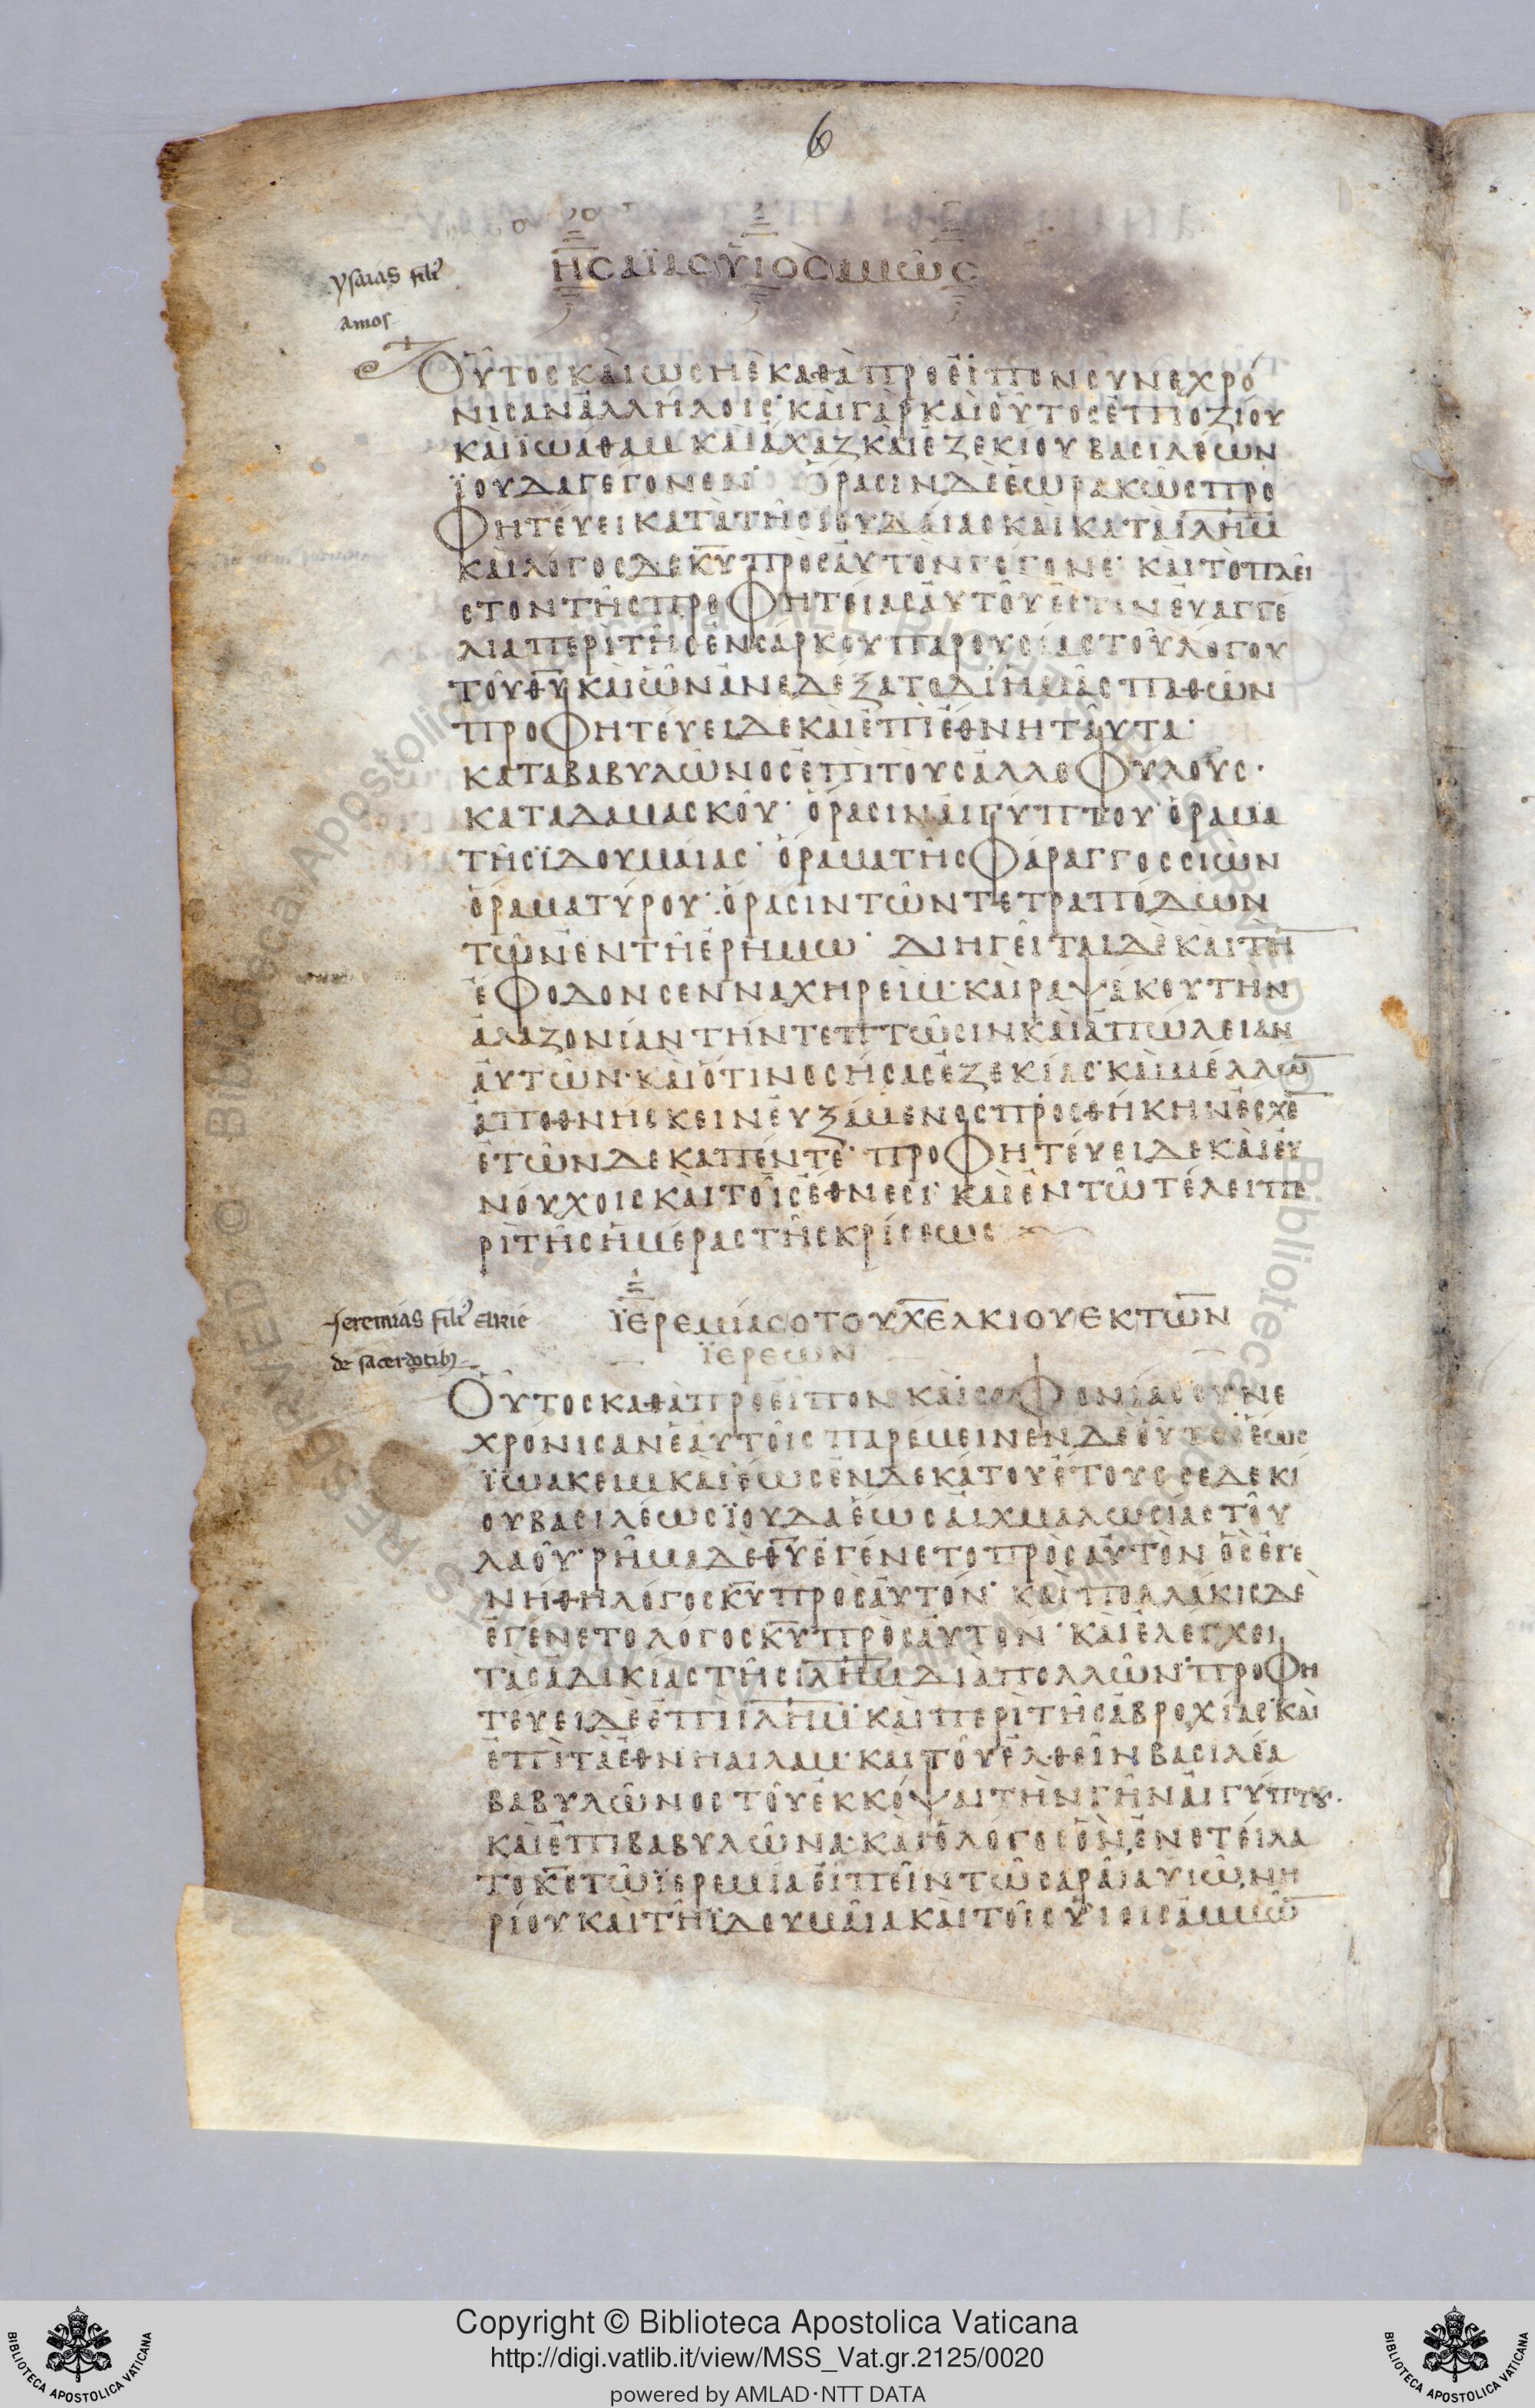 6
ΗΣΑΪΑΣ ΥΙΟΣ ΑΜΩΣ
ysaias fili9
amos
ΟΥΤΟΣ ΚΑΙ ΩΣΗΕ ΚΑΘΑ ΠΡΟΕΙΠΟΝ ΣΥΝΕΧΡΟ
ΝΙΣΑΝ ΑΛΛΗΛΟΙΣ· ΚΑΙ ΓΑΡ ΚΑΙ ΟΥΤΟΣ ΕΠΙ ΟΖΙΟΥ
ΚΑΙ ΙΩΑΘΑΜ ΚΑΙ ΑΧΑΖ ΚΑΙ ΕΖΕΚΙΟΥ ΒΑΣΙΛΕΩΝ
ΪΟΥΔΑ ΓΕΓΟΝΕΝ· ΟΡΑΣΙΝ ΔΕ ΕΩΡΑΚΩΣ ΠΡΟ
ΦΗΤΕΥΕΙ ΚΑΤΑ ΤΗΣ ΙΟΥΔΑΙΑΣ ΚΑΙ ΚΑΤΑ ΙΛΗΜ
ΚΑΙ ΛΟΓΟΣ ΔΕ ΚΥ ΠΡΟΣ ΑΥΤΟΝ ΓΕΓΟΝΕ· ΚΑΙ ΤΟ ΠΛΕΙ
ΣΤΟΝ ΤΗΣ ΠΡΟΦΗΤΕΙΑΣ ΑΥΤΟΥ ΕΣΤΙΝ ΕΥΑΓΓΕ
ΛΙΑ ΠΕΡΙ ΤΗΣ ΕΝΣΑΡΚΟΥ ΠΑΡΟΥΣΙΑΣ ΤΟΥ ΛΟΓΟΥ
ΤΟΥ ΘΥ ΚΑΙ ΩΝ ΑΝΕΔΕΞΑΤΟ ΔΙ ΗΜΑΣ ΠΑΘΩΝ
ΠΡΟΦΗΤΕΥΕΙ ΔΕ ΚΑΙ ΕΠΙ ΕΘΝΗ ΤΑΥΤΑ·
ΚΑΤΑ ΒΑΒΥΛΩΝΟΣ ΕΠΙ ΤΟΥΣ ΑΛΛΟΦΥΛΟΥΣ·
ΚΑΤΑ ΔΑΜΑΣΚΟΥ· ΟΡΑΣΙΝ ΑΙΓΥΠΤΟΥ· ΟΡΑΜΑ
ΤΗΣ ΪΔΟΥΜΑΙΑΣ· ΟΡΑΜΑ ΤΗΣ ΦΑΡΑΓΓΟΣ ΣΙΩΝ
ΟΡΑΜΑ ΤΥΡΟΥ· ΟΡΑΣΙΝ ΤΩΝ ΤΕΤΡΑΠΟΔΩΝ
ΤΩΝ ΕΝ ΤΗ ΕΡΗΜΩ· ΔΙΗΓΕΙΤΑΙ ΔΕ ΚΑΙ ΤΗ̅
ΕΦΟΔΟΝ ΣΕΝΝΑΧΗΡΕΙΜ· ΚΑΙ ΡΑΨΑΚΟΥ ΤΗΝ
ΑΛΑΖΟΝΙΑΝ ΤΗΝ ΤΕ ΠΤΩΣΙΝ ΚΑΙ ΑΠΩΛΕΙΑΝ
ΑΥΤΩΝ· ΚΑΙ ΟΤΙ ΝΟΣΗΣΑΣ ΕΖΕΚΙΑΣ· ΚΑΙ ΜΕΛΛΩ̅
ΑΠΟΘΝΗΣΚΕΙΝ ΕΥΞΑΜΕΝΟΣ ΠΡΟΣΘΗΚΗΝ ΕΣΧΕ̅
ΕΤΩΝ ΔΕΚΑΠΕΝΤΕ· ΠΡΟΦΗΤΕΥΕΙ ΔΕ ΚΑΙ ΕΥ
ΝΟΥΧΟΙΣ ΚΑΙ ΤΟΙΣ ΕΘΝΕΣΙ· ΚΑΙ ΕΝ ΤΩ ΤΕΛΕΙ ΠΕ
ΡΙ ΤΗΣ ΗΜΕΡΑΣ ΤΗΣ ΚΡΙΣΕΩΣ
Jeremias fili9 elkie
de sacerdotib;
ΪΕΡΕΜΙΑΣ Ο ΤΟΥ ΧΕΛΚΙΟΥ ΕΚ ΤΩΝ
ΪΕΡΕΩΝ
ΟΥΤΟΣ ΚΑΘΑ ΠΡΟΕΙΠΟΝ ΚΑΙ ΣΟΦΟΝΙΑΣ ΣΥΝΕ
ΧΡΟΝΙΣΑΝ ΕΑΥΤΟΙΣ ΠΑΡΕΜΕΙΝΕΝ ΔΕ ΟΥΤΟΣ ΕΩΣ
ΪΩΑΚΕΙΜ ΚΑΙ ΕΩΣ ΕΝΔΕΚΑΤΟΥ ΕΤΟΥΣ ΣΕΔΕΚΙ
ΟΥ ΒΑΣΙΛΕΩΣ ΪΟΥΔΑ ΕΩΣ ΑΙΧΜΑΛΩΣΙΑΣ ΤΟΥ
ΛΑΟΥ· ΡΗΜΑ ΔΕ ΘΥ ΕΓΕΝΕΤΟ ΠΡΟΣ ΑΥΤΟΝ ΟΣ ΕΓΕ
ΝΗΘΗ ΛΟΓΟΣ ΚΥ ΠΡΟΣ ΑΥΤΟΝ· ΚΑΙ ΠΟΛΛΑΚΙΣ ΔΕ
ΕΓΕΝΕΤΟ ΛΟΓΟΣ ΚΥ ΠΡΟΣ ΑΥΤΟΝ· ΚΑΙ ΕΛΕΓΧΕΙ
ΤΑΣ ΑΔΙΚΙΑΣ ΤΗΣ ΙΛΗΜ ΔΙΑ ΠΟΛΛΩΝ· ΠΡΟΦΗ
ΤΕΥΕΙ ΔΕ ΕΠΙ ΙΛΗΜ· ΚΑΙ ΠΕΡΙ ΤΗΣ ΑΒΡΟΧΙΑΣ· ΚΑΙ
ΕΠΙ ΤΑ ΕΘΝΗ ΑΙΛΑΜ· ΚΑΙ ΤΟΥ ΕΛΘΕΙΝ ΒΑΣΙΛΕΑ
ΒΑΒΥΛΩΝΟΣ ΤΟΥ ΕΚΚΟΨΑΙ ΤΗΝ ΓΗΝ ΑΙΓΥΠΤΟΥ·
ΚΑΙ ΕΠΙ ΒΑΒΥΛΩΝΑ· ΚΑΙ Ο ΛΟΓΟΣ ΟΝ ΕΝΕΤΕΙΛΑ
ΤΟ ΚΣ ΤΩ ΪΕΡΕΜΙΑ ΕΙΠΕΙΝ ΤΩ ΣΑΡΑΙΑ ΥΙΩ ΝΗ
ΡΙΟΥ ΚΑΙ ΤΗ ΪΔΟΥΜΑΙΑ ΚΑΙ ΤΟΙΣ ΥΙΟΙΣ ΑΜΜΩ̅
Copyright © Biblioteca Apostolica Vaticana
http://digi.vatlib.it/view/MSS_Vat.gr.2125/0020
powered by AMLAD·NTT DATA